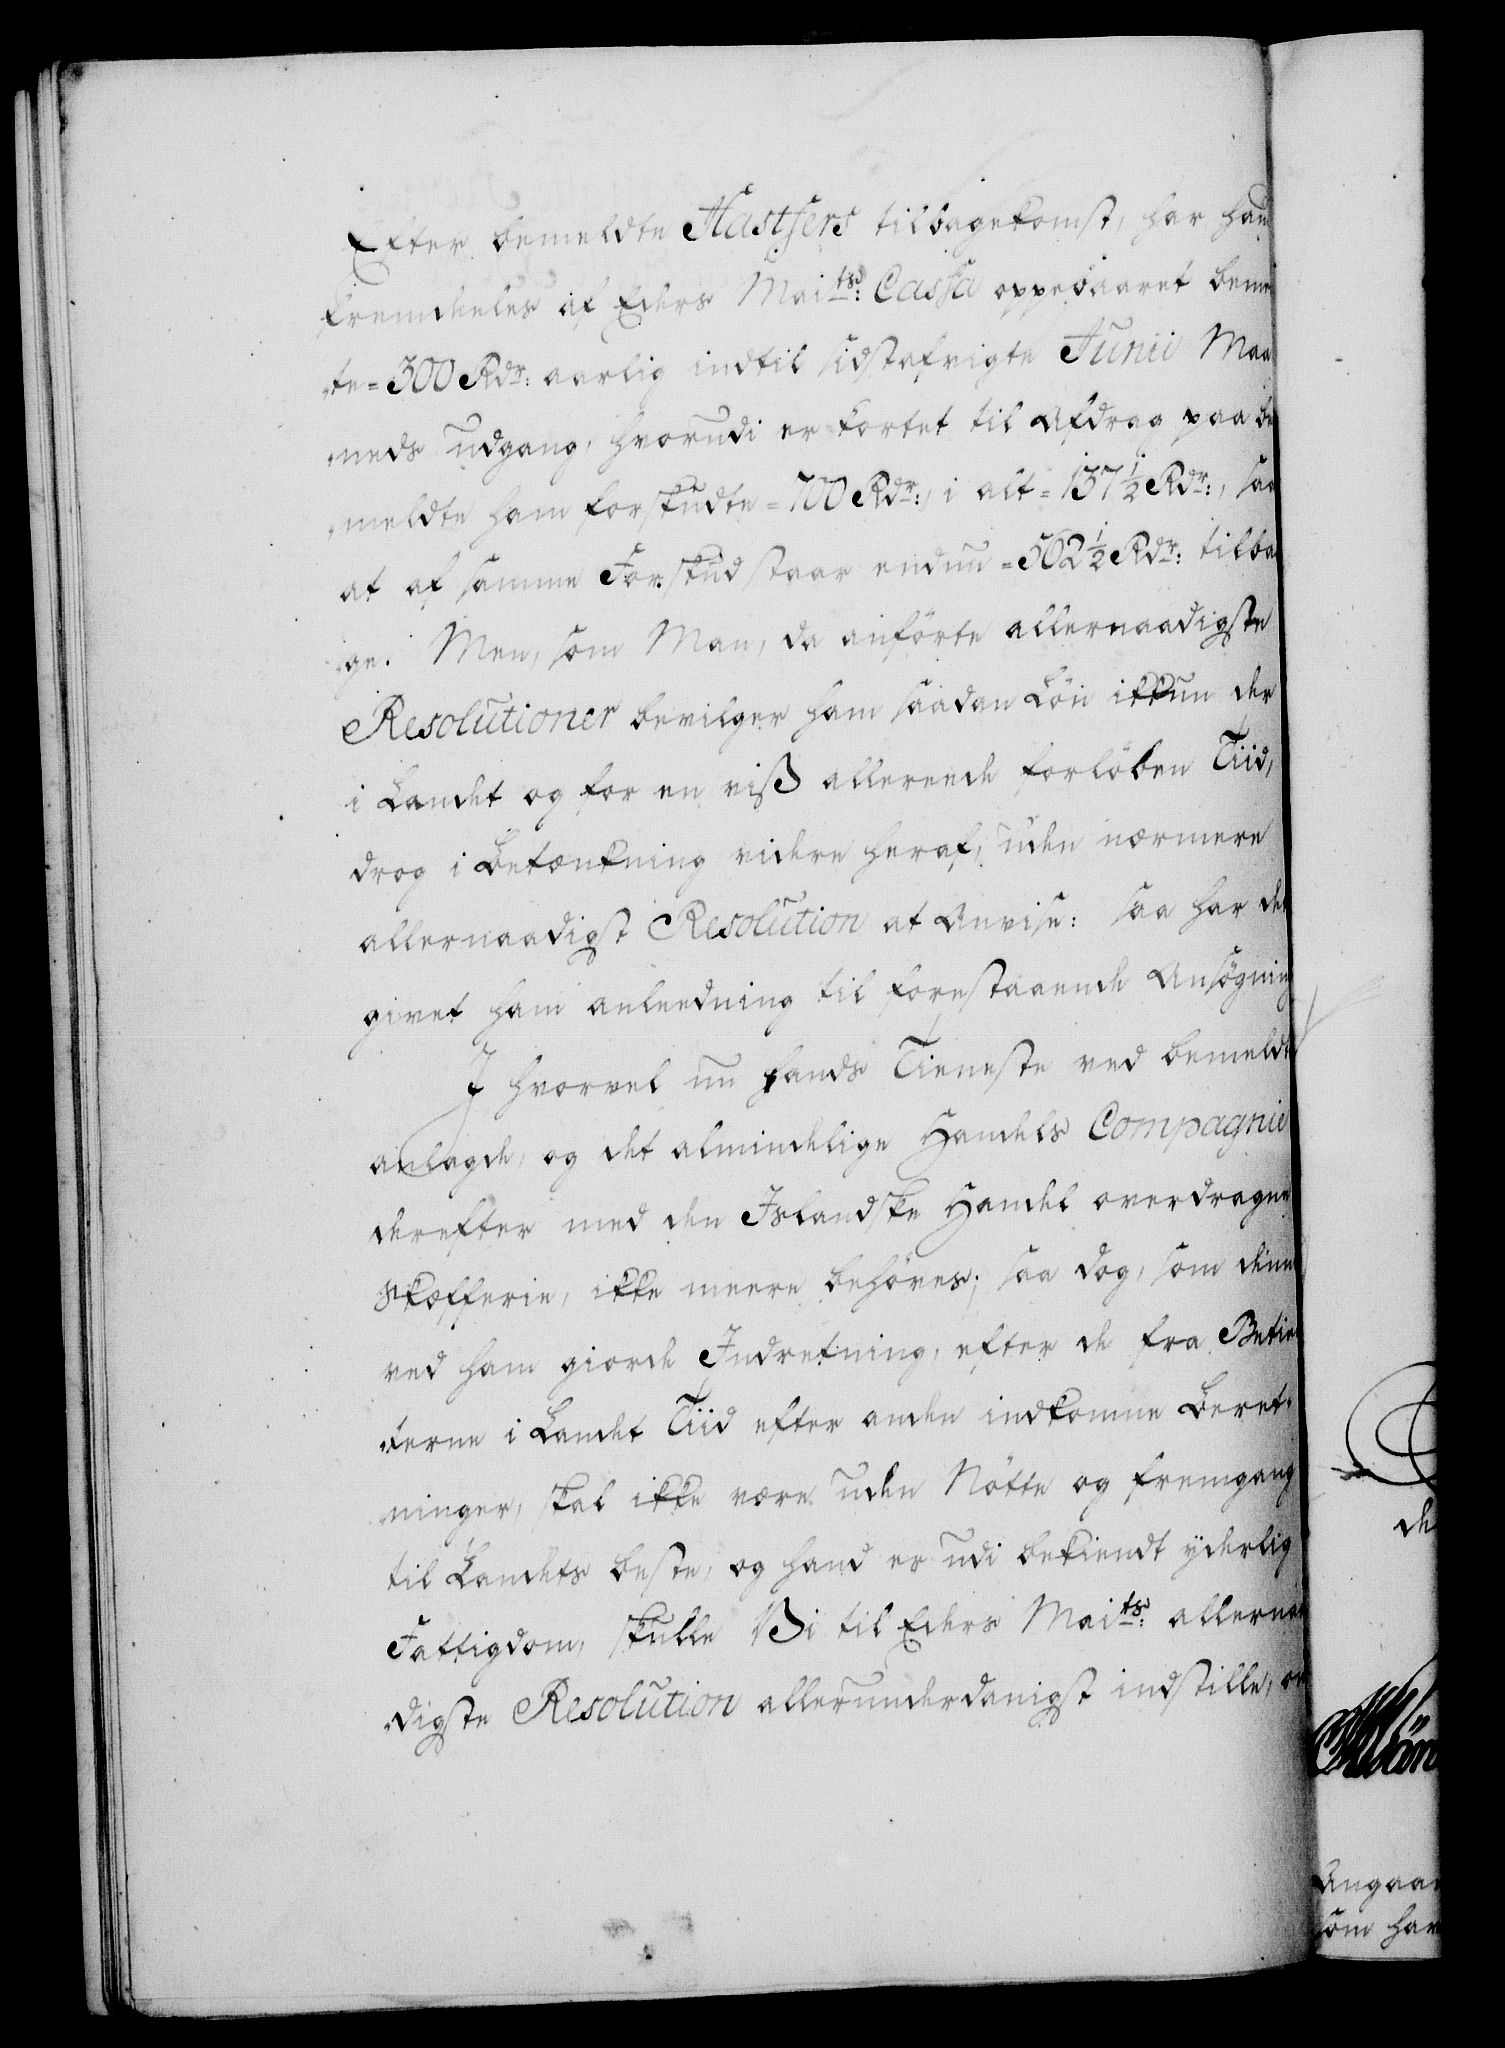 Efter bemeldte Hastfers tilbagekomst, har han
fremdeeles af Eders Mai<sup>ts</sup>: Cassa oppebaaret beme
te = 300 Rdr: aarlig indtil sidstafvigte Junii Maa
neds udgang, hvorudi er kortet til Afdrag paa be
meldte ham forskudte = 700 Rdr:, i alt = 137½ Rdr:, saa
at af samme Forskud staar endnu = 562½ Rdr: tilba
ge. Men, som Man, da anførte allernaadigste
Resolutioner bevilger ham saadan Løn ikkun der
i Landet og for en viß allereede forløben Tiid,
drog i Betænkning videre heraf, uden nærmere
allernaadigst Resolution at Anvise: saa har det
givet ham anleedning til forestaaende Ansøgning
J hvorvel nu hands Tieneste ved bemeldte
anlagde, og det almindelige Handels Compagnie
derefter med den Islandske Handel overdragne
Skæfferie, ikke meere behøves; saa dog, som denne
ved ham giorde Indretning, efter de fra Betien
terne i Landet Tiid efter anden indkomne Beret-
ninger, skal ikke være uden Nøtte og fremgang
til Landets beste, og hand er udi bekiendt yderlig
Fattigdom, skulle Vi til Eders Mai<sup>ts</sup>: allernaa
digste Resolution allerunderdanigst indstille, om
de
Angaa
som har